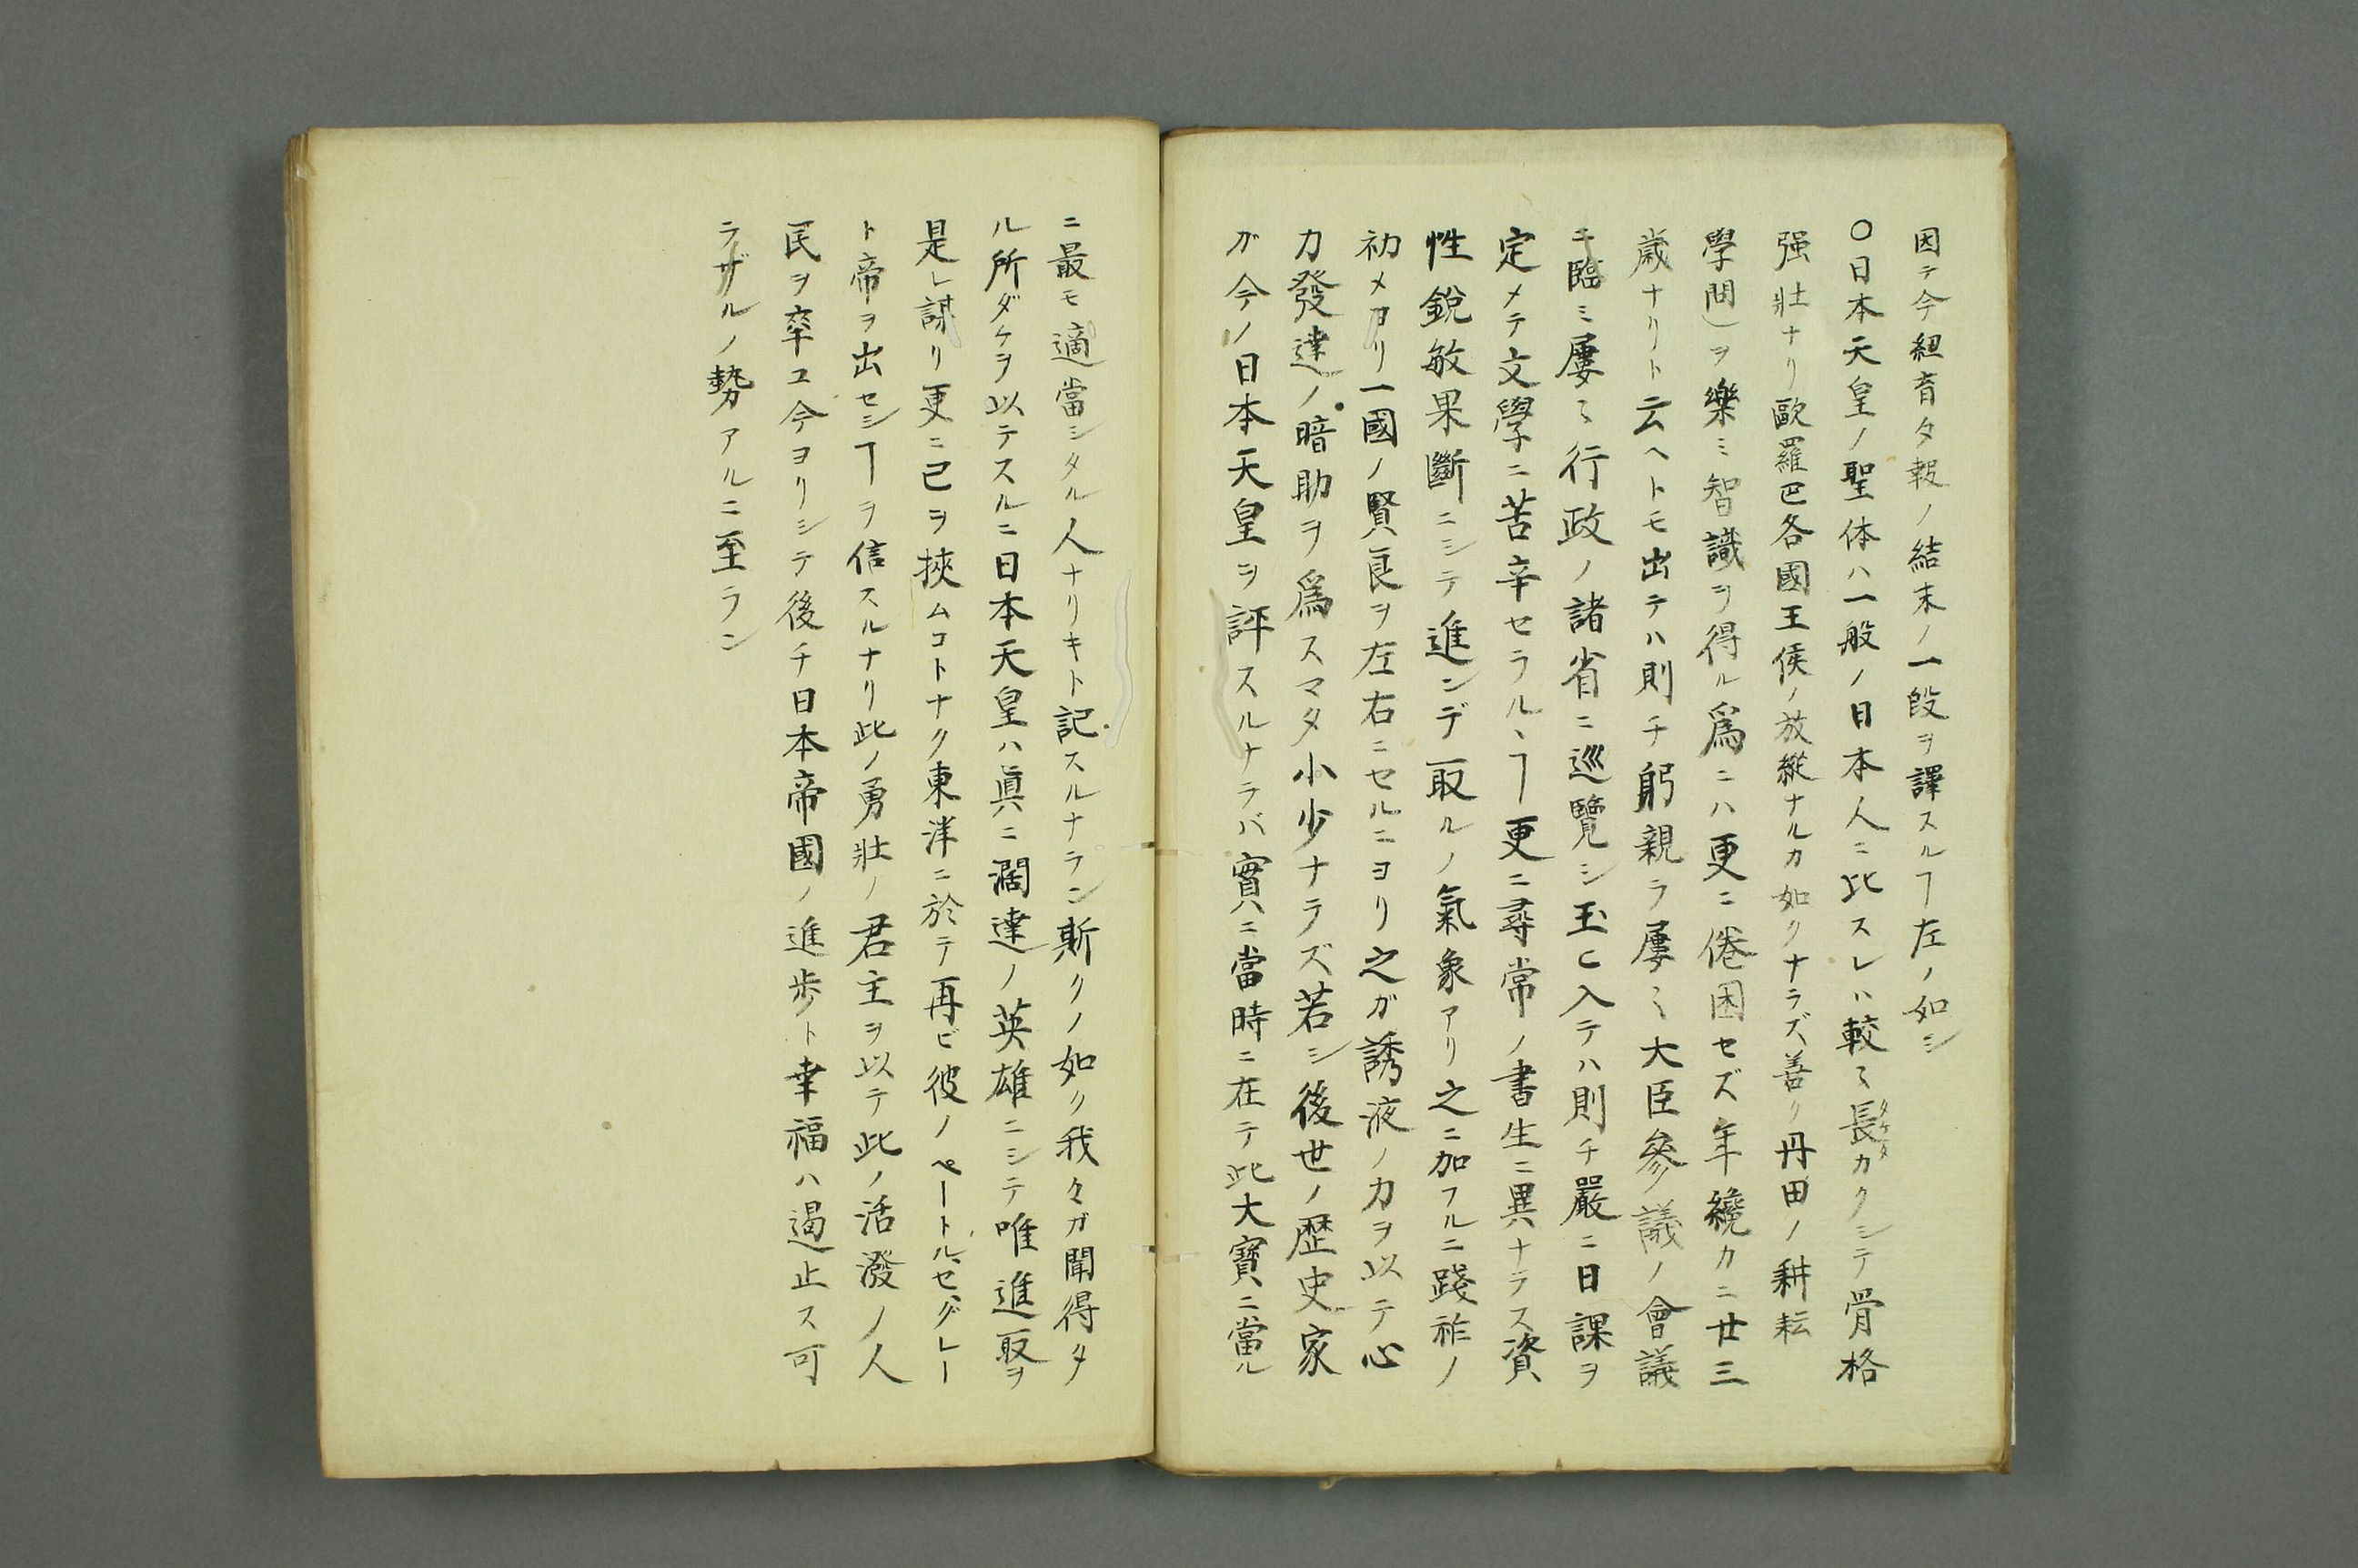 因テ今紐育タ報ノ結末ノ一段ヲ譯スルヿ左ノ如シ
〇日本天皇ノ聖体ハ一般ノ日本人ニ比スレハ較〻長カクシテ骨格
タケタ
强壯ナリ歐羅巴各國王侯ノ放縦ナルカ如クナラズ善ク丹田ノ耕耘
學問)ヲ樂ミ智識ヲ得ル爲ニハ更ニ倦困セズ年纔カニ廿三
歳ナリト云ヘトモ出テハ則チ躬親ラ屢〻大臣參議ノ會議
ニ臨ミ屢〻行政ノ諸省ニ巡覽シ玉ヒ入テハ則チ嚴ニ日課ヲ
定メテ文學ニ苦辛セラルヽヿ更ニ尋常ノ書生ニ異ナラス資
性銳敏果斷ニシテ進ンデ取ルノ氣象アリ之ニ加フルニ踐祚ノ
初メヨリ一國ノ賢良ヲ左右ニセルニヨリ之ガ誘液ノ力ヲ以テ心
力發達ノ暗助ヲ爲スマタ小少ナラズ若シ後世ノ歴史家
ガ今ノ日本天皇ヲ評スルナラバ實ニ當時ニ在テ此大寶ニ當ル
ニ最モ適當シタル人ナリキト記スルナラン斯クノ如ク我々ガ聞得タ
ル所ダケヲ以テスルニ日本天皇ハ眞ニ濶達ノ英雄ニシテ唯進取ヲ
是レ謀リ更ニ己ヲ挾ムコトナク東洋ニ於テ再ビ彼ノペートルセグレー
ト帝ヲ出セシヿヲ信スルナリ此ノ勇壯ノ君主ヲ以テ此ノ活潑ノ人
民ヲ卒ユ今ヨリシテ後チ日本帝國ノ進歩ト幸福ハ遏止ス可
ラザルノ勢アルニ至ラン